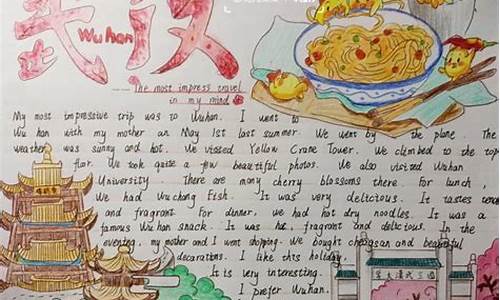 武汉
Wu han
The most impress travel
in my mind
My most impressive trip was to Wuhan. I went to
Wu han with my mother on May 1st last summer. We went by the plane. The
weather was sunny and hot. We visited Yellow Crane Tower. We climbed to the top
flor. We took quite a few beautiful photos. We also visited Wuhan
University. There are many cherry blossoms there. For lunch,
we had Wuchang Fish. It was very delicious. It tastes
and fragrant. For dinner, we had hot dry noodles. It was a
famous Wuhan snack. It was hot, fragrant and delicious. In the
evening, my mother and I went shopping. We bought and beautiful
decorations. I like this holiday.
It is very interesting.
I prefer Wuhan.